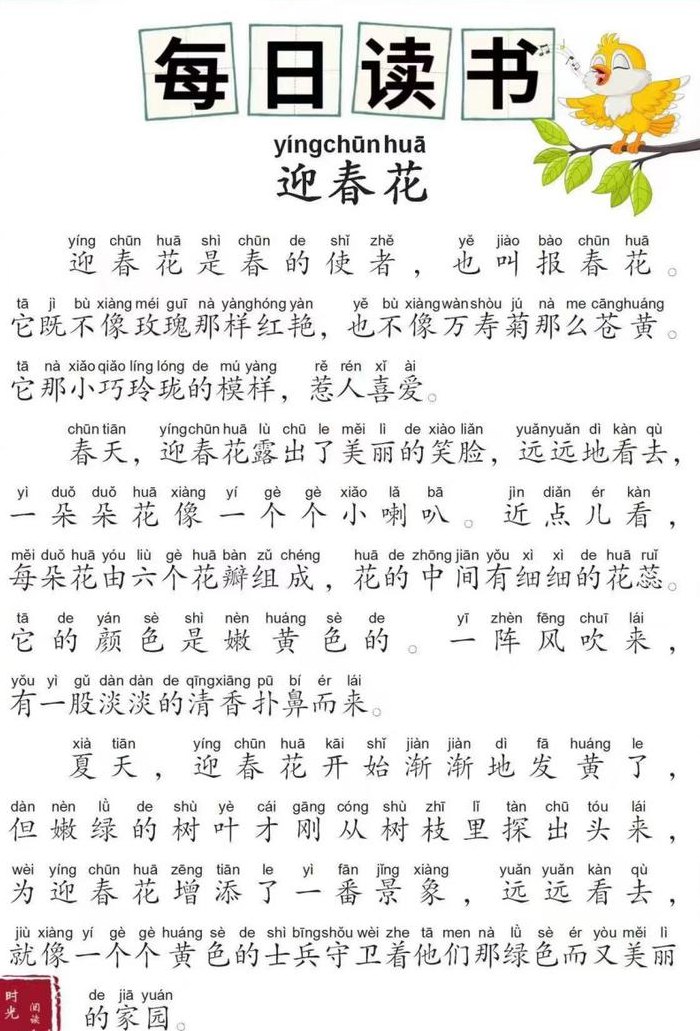 每日读书
yíngchūnhuā
迎春花
yíng chūn huā shì chūn de shǐ zhě yě jiào bào chūn huā
迎春花是春的使者，也叫报春花。
tā jì bù xiàng méi guī nà yàng hóng yàn yě bù xiàng wàn shòu jú nà me cāng huáng
它既不像玫瑰那样红艳，也不像万寿菊那么苍黄。
tā nà xiǎo qiǎo líng lóng de mú yàng rě rén xǐ ài
它那小巧玲珑的模样，惹人喜爱。
chūn tiān yíng chūn huā lù chū le měi lì de xiào liǎn yuǎn yuǎn dì kàn qù
春天，迎春花露出了美丽的笑脸，远远地看去，
yì duǒ duǒ huā xiàng yí gè gè xiǎo lǎ bā jìn diǎn ér kàn
一朵朵花像一个个小喇叭。近点儿看，
měi duǒ huā yóu liù gè huā bàn zǔ chéng huā de zhōng jiān yǒu xì xì de huā ruǐ
每朵花由六个花瓣组成，花的中间有细细的花蕊。
tā de yán sè shì nèn huáng sè de yī zhèn fēng chuī lái
它的颜色是嫩黄色的。一阵风吹来，
yǒu yì gǔ dàn dàn de qīng xiāng pū bí ér lái
有一股淡淡的清香扑鼻而来。
xià tiān yíng chūn huā kāi shǐ jiàn jiàn dì fā huáng le
夏天，迎春花开始渐渐地发黄了，
dàn nèn lǜ de shù yè cái gāng cóng shù zhī lǐ tàn chū tóu lái
但嫩绿的树叶才刚从树枝里探出头来，
wèi yíng chūn huā zēng tiān le yì fān jǐng xiàng yuǎn yuǎn kàn qù
为迎春花增添了一番景象，远远看去，
jiù xiàng yí gè gè huáng sè de shì bīng shǒu wèi zhe tā men nà lǜ sè ér yòu měi lì
就像一个个黄色的士兵守卫着他们那绿色而又美丽
de jiā yuán
的家园。
时光
阅读